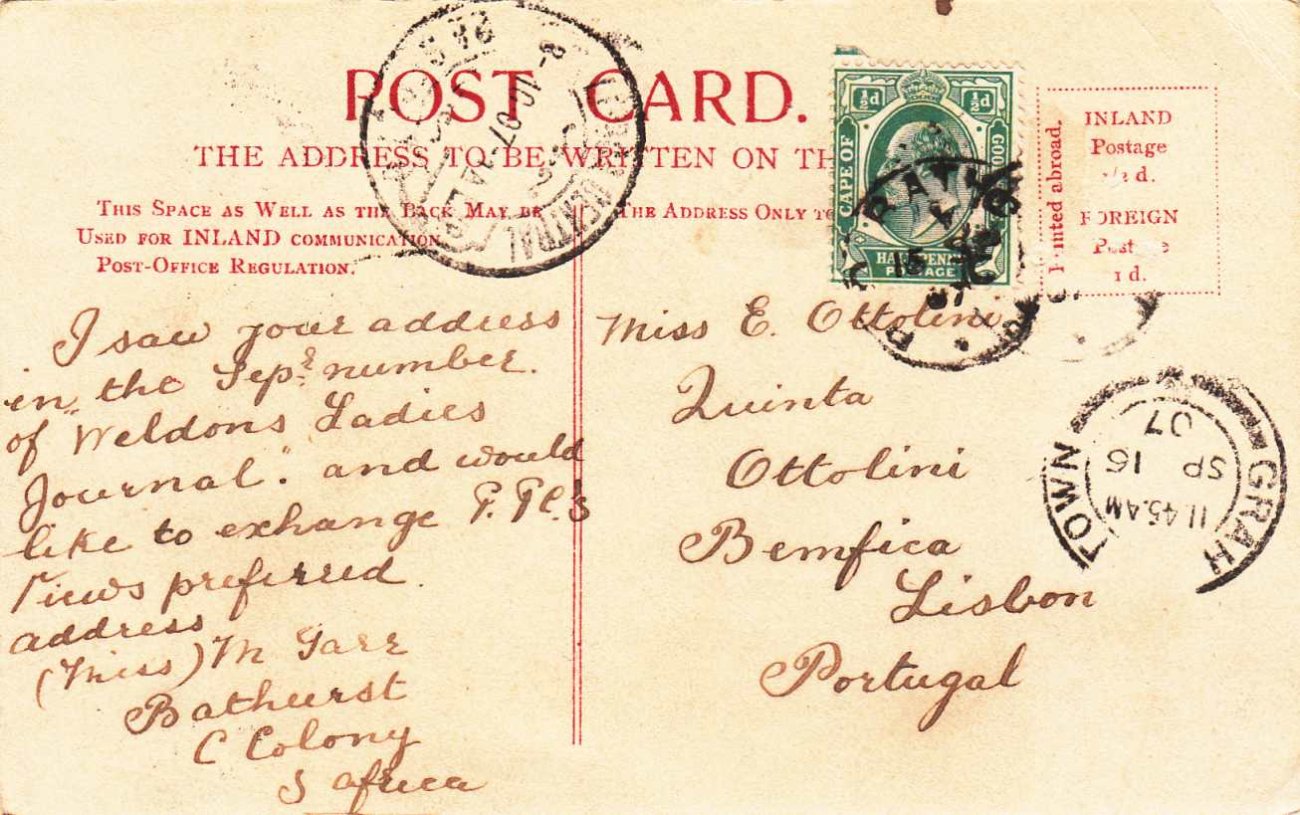 POST CARD.
THE ADDRESS TO BE WRITTEN ON
THIS SPACE AS WELL AS THE BACK MAY BE
USED FOR INLAND COMMUNICATION
POST-OFFICE REGULATION.
THE ADDRESS ONLY TO
½d ½d
CAPE OF GOO
HALF PENNY
POSTAGE
Printed abroad.
INLAND
Postage
1/2 d.
FOREIGN
Postage
1 d.
CENTRAL
8-10-07
GRAH TOWN
11.45.AM
SP 16
07
I saw your address
in the Sepr. number.
of "Weldons Ladies
Journal". and would
like to exchange P.PC.s
Views preferred.
address
(Miss) M Tarr
Bathurst
C Colony
S Africa
Miss E. Ottolini
Quinta
Ottolini
Bemfica
Lisbon
Portugal